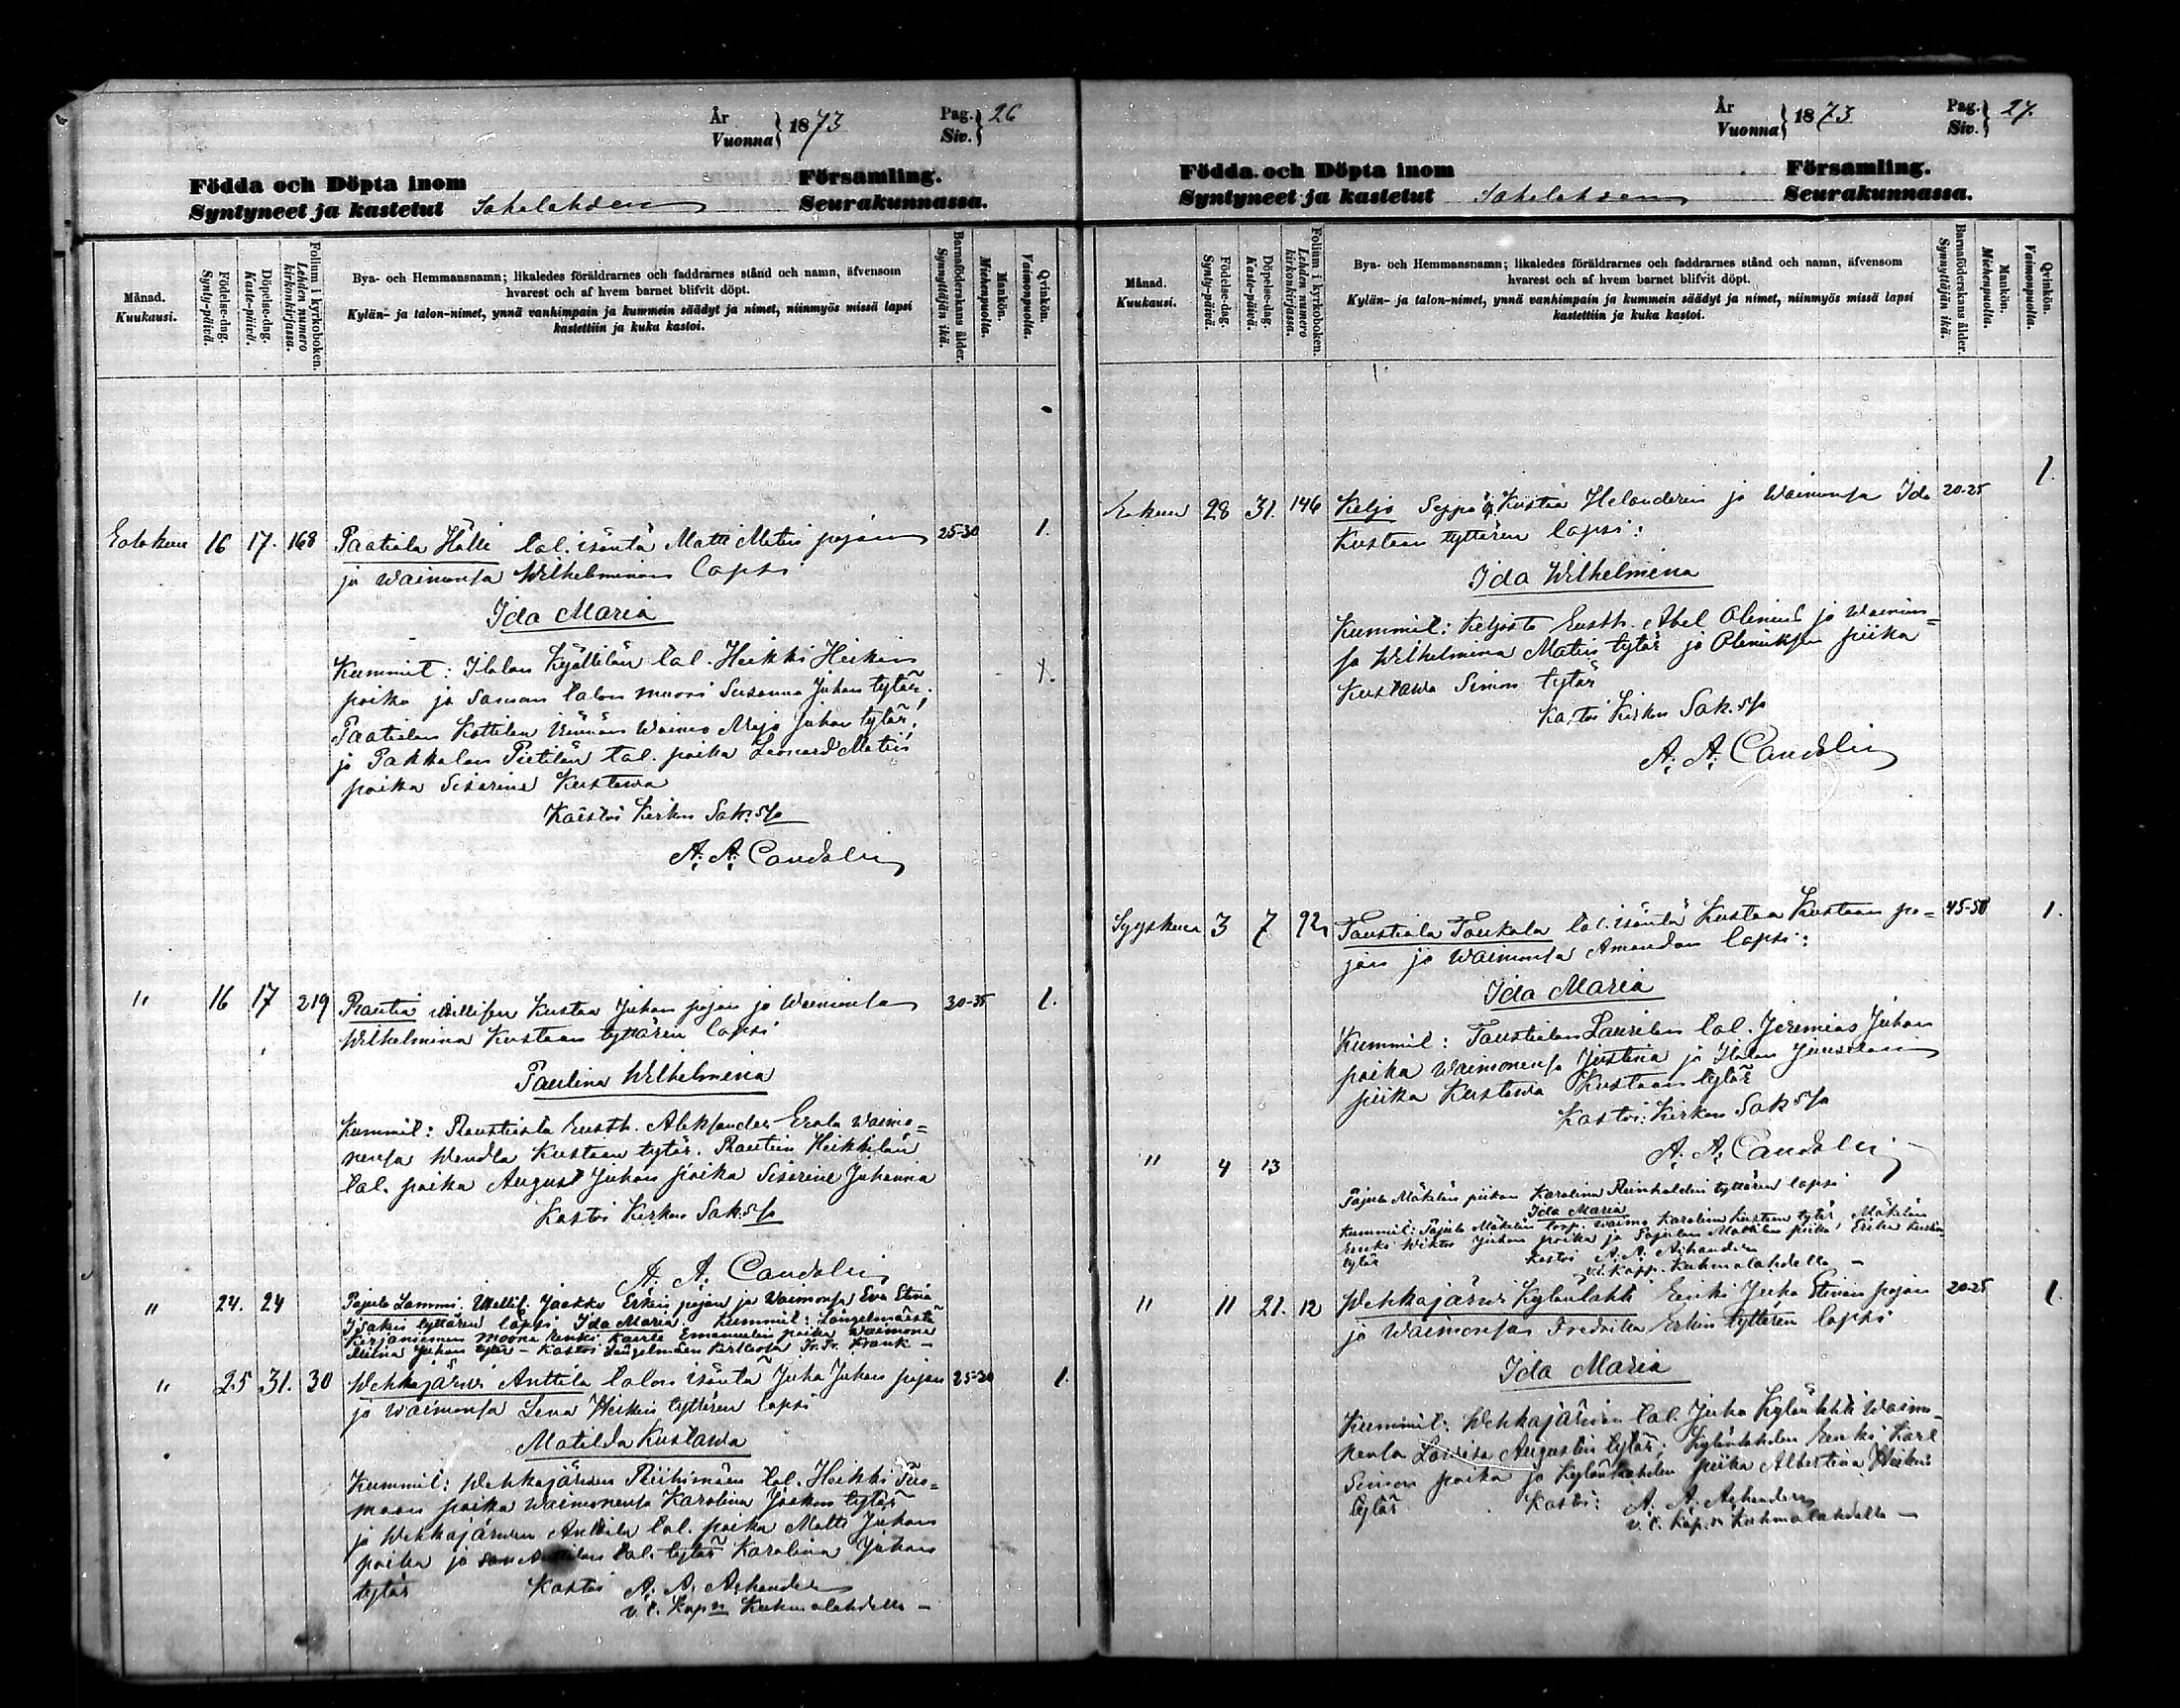 År
Vuonna } 1873
Pag.
Siv. } 26
Födda och Döpta inom Församling.
Syntyneet ja kastetut Sahalahden Seurakunnassa.
Månad.
Kuukausi.
Födelse-dag.
Synty-päivä.
Döpelse-dag.
Kaste-päivä.
Folium i kyrkoboken.
Lehden numero
kirkonkirjassa.
Bya- och Hemmansnamn; likaledes föräldrarnes och faddrarnes stånd och namn, äfvensom
hvarest och af hvem barnet blifvit döpt.
Kylän- ja talon-nimet, ynnä vanhimpain ja kummein säädyt ja nimet, niinmyös missä lapsi
kastettiin ja kuka kastoi.
Barnaföderskans ålder.
Synnyttäjän ikä.
Mankön.
Miehenpuolta.
Qvinkön.
Vaimonpuolta.
Elokuu 16 17. 168 Paatiala Hälli tal. isäntä Matti Matin pojan 25-30 1.
ja waimonsa Wilhelminan lapsi
Ida Maria
Kummit: Ilolan Kyöttilän tal. Heikki Heikin
poika ja saman talon muori Susanna Juhan tytär;
Paatialan Kottilan isännän waimo Maja Juhan tytär;
ja Pakkalan Pietilän tal. poika Leonard Matin
poika Sisarine Kustawa
Kastoi Kirkon Sak:ssa
A. A. Candolin
" 16 17 219 Rautia Kustaa Juhan pojan ja Waimonsa 30-35 1.
Wilhelmina Kustaan tyttären lapsi
Paulina Wilhelmina
Kummit: Raustista Eusth. Aleksander Erola waimo=
nensa Wendla Kustaan tytär. Rautien Heikkilän
tal. poika August Juhan poika Sisarine Juhanna
Kastoi Kirkon Sak:ssa
A. A. Candolin
" 24. 24 Pajula Lammi. Ittellis. Jaakko Erkin pojan ja Waimonsa Eva Stina
Isakin tyttären lapsi Ida Maria. Kummit: Längelmäestä
moona renki Kaarle Emanuelin poika Waimona
Miina Juhan tytär – Kastoi Längelmäen Fr. Fr. Krank –
" 25 31. 30 Wehkajärwi Anttila talon isäntä Juha Juhan pojan 25-30 1.
ja waimonsa Lena Heikin tyttären lapsi
Matilda Kustawa
Kummit: Wehkajärwen Riihimäen tal. Heikki Tuo=
maan poika waimonensa Karolina Jaakon tytär
ja Wehkajärwen Anttila tal. poika Matti Juhan
poika ja Anttilan tal. tytär Karolina Juhan
tytär Kastoi A. A. Ashander
v. t. Kap:n Kuhmalahdella –
År
Vuonna } 1873
Pag.
Siv. } 27.
Födda och Döpta inom Församling.
Syntyneet ja kastetut Sahalahden Seurakunnassa.
Månad.
Kuukausi.
Födelse-dag.
Synty-päivä.
Döpelse-dag.
Kaste-päivä.
Folium i kyrkoboken.
Lehden numero
kirkonkirjassa.
Bya- och Hemmansnamn; likaledes föräldrarnes och faddrarnes stånd och namn, äfvensom
hvarest och af hvem barnet blifvit döpt.
Kylän- ja talon-nimet, ynnä vanhimpain ja kummein säädyt ja nimet, niinmyös missä lapsi
kastettiin ja kuka kastoi.
Barnaföderskans ålder.
Synnyttäjän ikä.
Mankön.
Miehenpuolta.
Qvinkön.
Vaimonpuolta.
Elokuu 28 31. 146 Keljo Seppä Kustaa Helanderin ja Waimonsa Ida 20-25 1.
Kustaan tyttären lapsi:
Ida Wilhelmina
Kummit: Keljosta Eusth. Abel Olenius ja waimon=
sa Wilhelmina Matin tytär ja Oleniuksen piika
Kustawa Simon tytär
Kastoi Kirkon Sak.ssa
A. A. Candolin
Syyskuu 3 7 92 Taustiala Toukola tal. isäntä Kustaa Kustaan po= 45-50 1.
jan ja waimonsa Amandan lapsi:
Ida Maria
Kummit: Taustialan Laurilan tal. Jeremias Juhan
poika waimonensa Justina ja Ilolan
piika Kustawa Kustaan tytär
Kastoi: Kirkon Sak.ssa
A. A. Candolin
" 4 13
Pajula Mäkelän piikan Karolina Reinholdin tyttären lapsi
Ida Maria
Kummit: Pajula Mäkelän torp. waimo Karolina Kustaan tytär Mäkelän
Renki Wiktor Juhan poika ja Pajulan Mattilan piika Erika Kustaan
tytär Kastoi A. A. Ashander
v.t. Kapp. Kuhmalahdella –
" 11 21. 12 Wehkajärwi Kylänlahti Renki Juha Stenin pojan 20-25 1.
ja Waimonsa Fredrika Erkin tyttären lapsi
Ida Maria
Kummit: Wehkajärwen tal. Juha Kylänlahti waimo=
nensa Lowisa Augustin tytär: Kylänlahden Renki Karl
Simon poika ja Kylänlahden piika Albertina Heikin
tytär Kastoi: A. A. Ashander
v. t. Kap.n Kuhmalahdella –